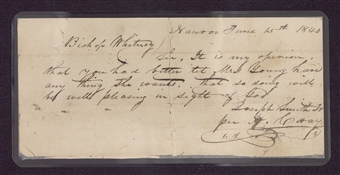 Nauvoo June 15th 1840
Bishop Whitney
Sir, It is my opinion
that you had better let Mrs Young have
any thing she wants. that so doing will
be well pleasing in sight of God
Joseph Smith Jr
per